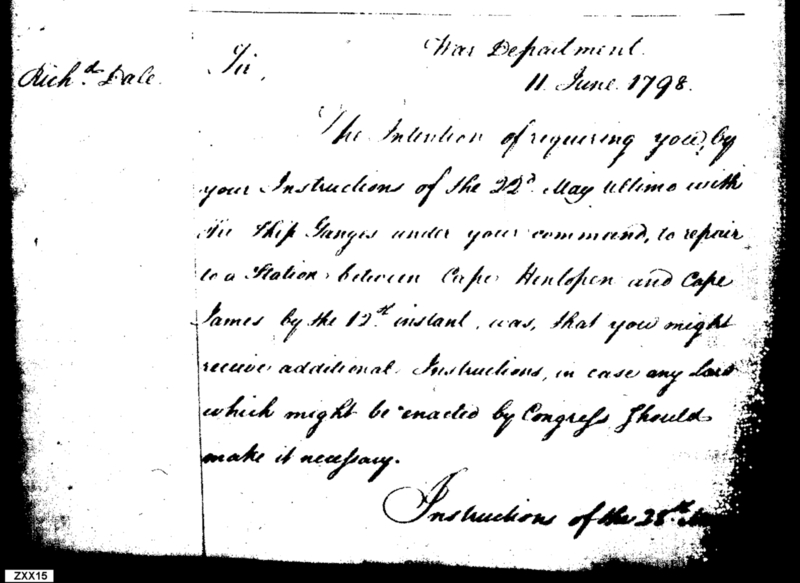 Richd. Dale.
Sir,
War Department.
11 June 1798.
The Intention of requiring you, by
your Instructions of the 22d. May Ultimo with
the Ship Ganges under your command, to repair
to a Station between Cape Henlopen and Cape
James by the 12th. instant, was, that you might
receive additional Instructions, in case any Laws
which might be enacted by Congress should
make it necessary.
Instructions of the 28th.
ZXX15